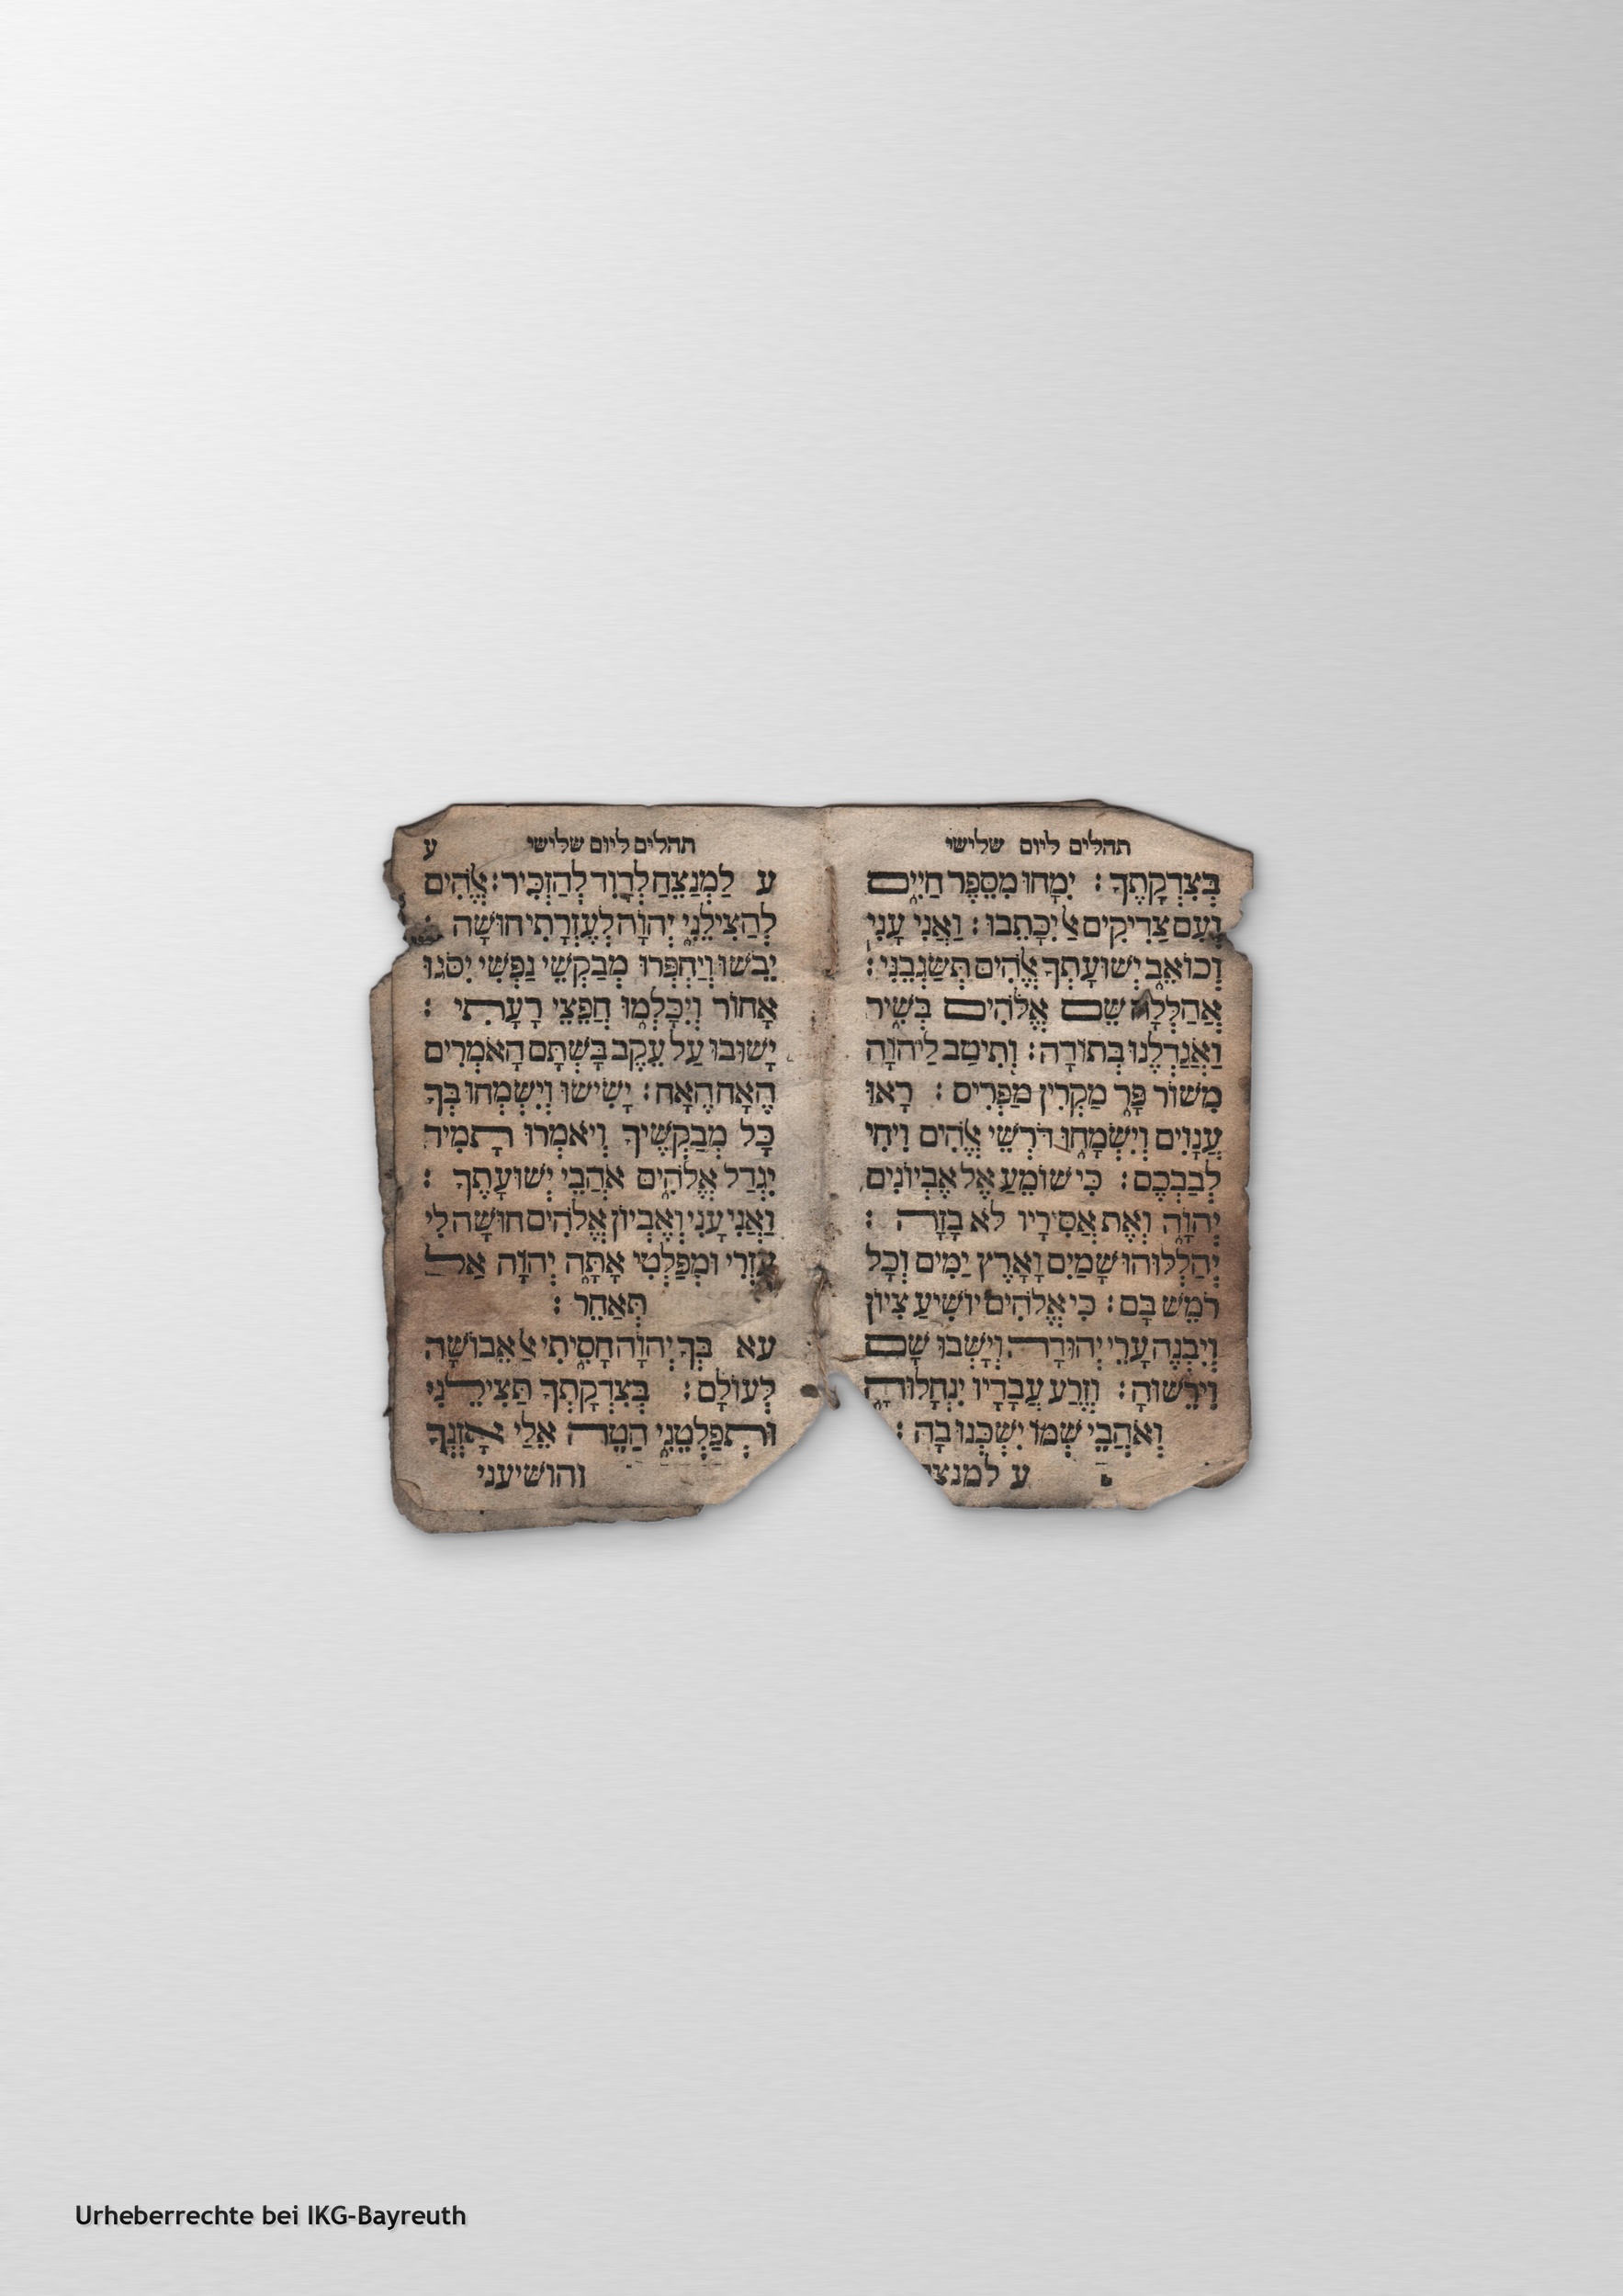 תהלים ליום שלישי
בְּצִדְקָתֶךָ : יִמָּחוּ מִסֵּפֶר חַיִּים
וְעִם צַדִּיקִים אַל יִכָּתֵבוּ : וַאֲנִי עָנִי
וְכוֹאֵב יְשׁוּעָתְךָ אֱלֹהִים תְּשַׂגְּבֵנִי :
אֲהַלְלָה שֵׁם אֱלֹהִים בְּשִׁיר
וַאֲגַדְּלֶנּוּ בְתוֹדָה : וְתִיטַב לַיהוָֹה
מִשּׁוֹר פָּר מַקְרִין מַפְרִיס : רָאוּ
עֲנָוִים וְיִשְׂמָחוּ דֹּרְשֵׁי אֱלֹהִים וִיחִי
לְבַבְכֶם : כִּי שׁוֹמֵעַ אֶל אֶבְיוֹנִים
יְהוָֹה וְאֶת אֲסִירָיו לֹא בָזָה :
יְהַלְלוּהוּ שָׁמַיִם וָאָרֶץ יַמִּים וְכָל
רֹמֵשׂ בָּם : כִּי אֱלֹהִים יוֹשִׁיעַ צִיּוֹן
וְיִבְנֶה עָרֵי יְהוּדָה וְיָשְׁבוּ שָׁם
וִירֵשׁוּהָ : וְזֶרַע עֲבָדָיו יִנְחָלוּהָ
וְאֹהֲבֵי שְׁמוֹ יִשְׁכְּנוּ בָהּ :
ע למנצ
תהלים ליום שלישי ע
ע לַמְנַצֵּחַ לְדָוִד לְהַזְכִּיר : אֱלֹהִים
לְהַצִּילֵנִי יְהוָֹה לְעֶזְרָתִי חוּשָׁה :
יֵבֹשׁוּ וְיַחְפְּרוּ מְבַקְשֵׁי נַפְשִׁי יִסֹּגוּ
אָחוֹר וְיִכָּלְמוּ חֲפֵצֵי רָעָתִי :
יָשׁוּבוּ עַל עֵקֶב בָּשְׁתָּם הָאֹמְרִים
הֶאָח הֶאָח : יָשִׂישׂוּ וְיִשְׂמְחוּ בְּךָ
כָּל מְבַקְשֶׁיךָ וְיֹאמְרוּ תָמִיד
יִגְדַּל אֱלֹהִים אֹהֲבֵי יְשׁוּעָתֶךָ :
וַאֲנִי עָנִי וְאֶבְיוֹן אֱלֹהִים חוּשָׁה לִּי
עֶזְרִי וּמְפַלְטִי אַתָּה יְהוָֹה אַל
תְּאַחַר :
עא בְּךָ יְהוָֹה חָסִיתִי אַל אֵבוֹשָׁה
לְעוֹלָם : בְּצִדְקָתְךָ תַּצִּילֵנִי
וּתְפַלְּטֵנִי הַטֵּה אֵלַי אָזְנְךָ
והושיעני
Urheberrechte bei IKG-Bayreuth